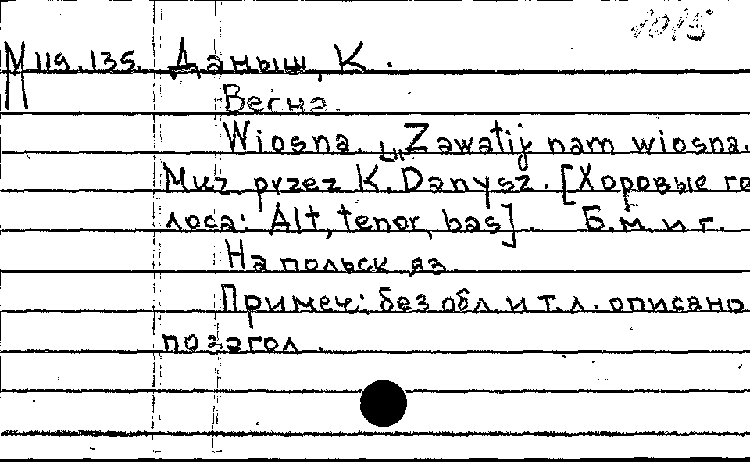 1015
М 119.135. Даныш, К.
Весна.
Wiosna. „Zawatij nam wiosna.
Muz. przez K. Danysz. [Хоровые го
лоса: Alt, tenor, bas]. Б.м. и г.
На польск. яз.
Примеч: без обл. и т.л. описано
по загол.